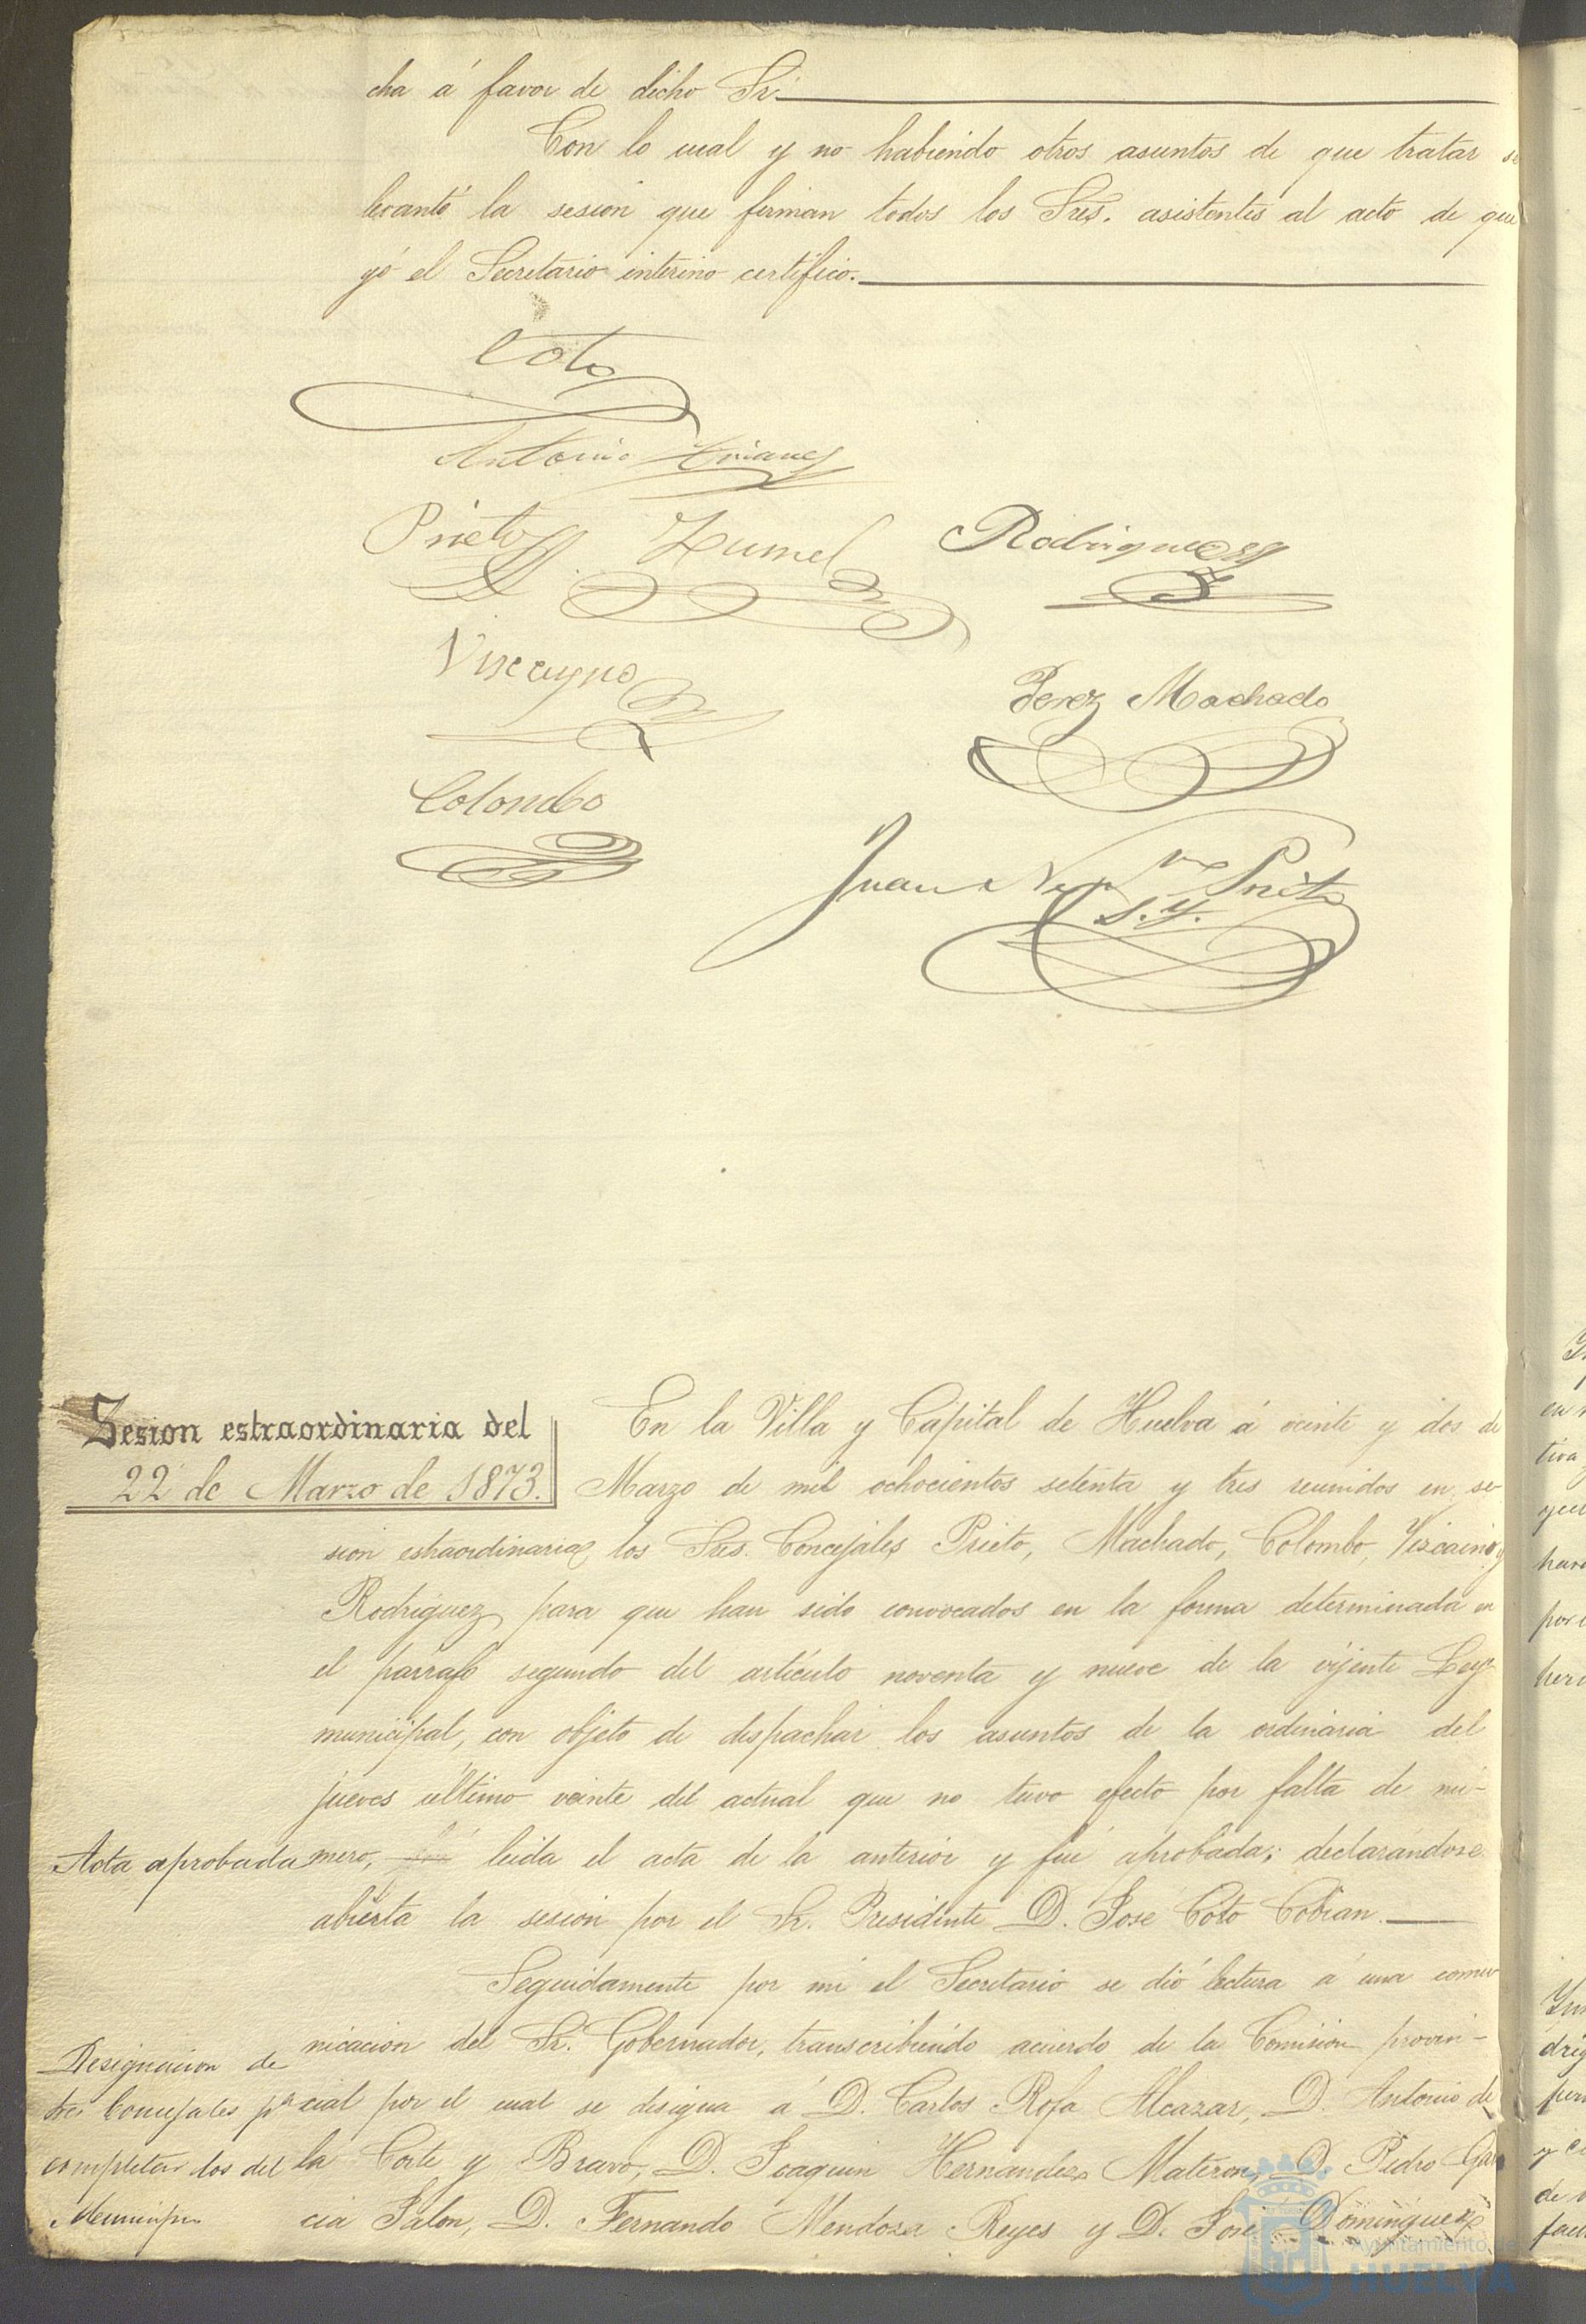 cha á favor de dicho Sr.
Con lo cual y no habiendo otros asuntos de que tratar se
levantó la sesion que firman todos los Sres. asistentes al acto de que
yó el Secretario interino certifico.
Coto
Antonio
Prieto Zumel Rodriguez
Viscayno
Perez Machado
Colombo
Juan Nep no Prieto
S. Y.
Sesion estraordinaria del
22 de Marzo de 1873.
En la Villa y Capital de Huelva á veinte y dos de
Marzo de mil ochocientos setenta y tres reunidos en se
sion estraordinaria los Sres. Concejales Prieto, Machado, Colombo, Vizcaino y
Rodriguez para que han sido convocados en la forma determinada en
el parrafo segundo del artículo noventa y nueve de la vijente Ley
municipal, con objeto de despachar los asuntos de la ordinaria del
jueves ultimo veinte del actual que no tuvo efecto por falta de nú-
Acta aprobada
mero, leida el acta de la anterior y fué aprobada; declarandose
abierta la sesion por el Sr. Presidente D. Jose Coto Cobian.
Seguidamente por mi el Secretario se dió lectura á una comu
nicacion del Sr. Gobernador, transcribiendo acuerdo de la Comision provin-
Designacion de
Concejales pa
completar los del
Municipio
cial por el cual se designa á D. Carlos Rofa Alcazar, D. Antonio de
la Corte y Bravo, D. Joaquin Hernandez Materon, D. Pedro Gar
cia Jalon, D. Fernando Mendoza Reyes y D. José Dominguez
Ayuntamiento de
HUELVA